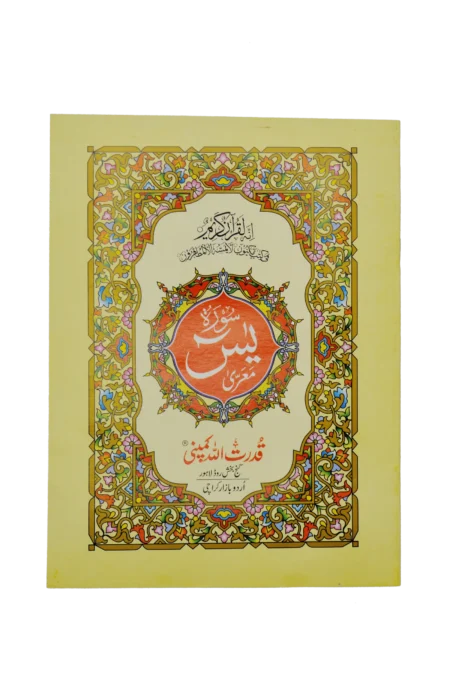 إنه لقرآن كريم
في كتب مكنون لا يمسه إلا المطهرون
سورة
يس
معریٰ
قدرت اللہ کمپنی ®
گنج بخش روڈ لاہور
اردو بازار کراچی